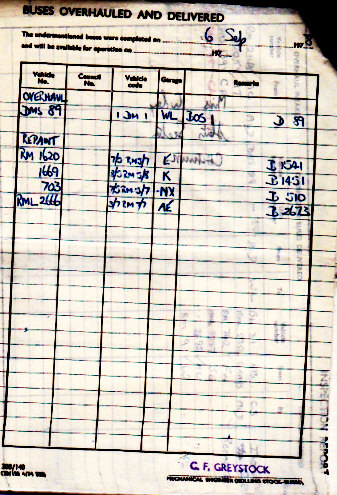 BUSES OVERHAULED AND DELIVERED
The undermentioned buses were completed on 6 Sep 197
and will be available for operation on 197
Vehicle No. Council No. Vehicle code Garage Remarks
OVERHAUL
DMS 89 1 DM 1 WL DOS 1 D 89
REPAINT
RM 1620 7/5 RM5/7 B 1541
1669 3/5RM5/8 K B 1451
703 7/5RM5/7 NX B 510
RML 2666 3/7RM7/1 AE B 2673
C. F. GREYSTOCK
MECHANICAL ENGINEER (ROLLING STOCK-BUSES)